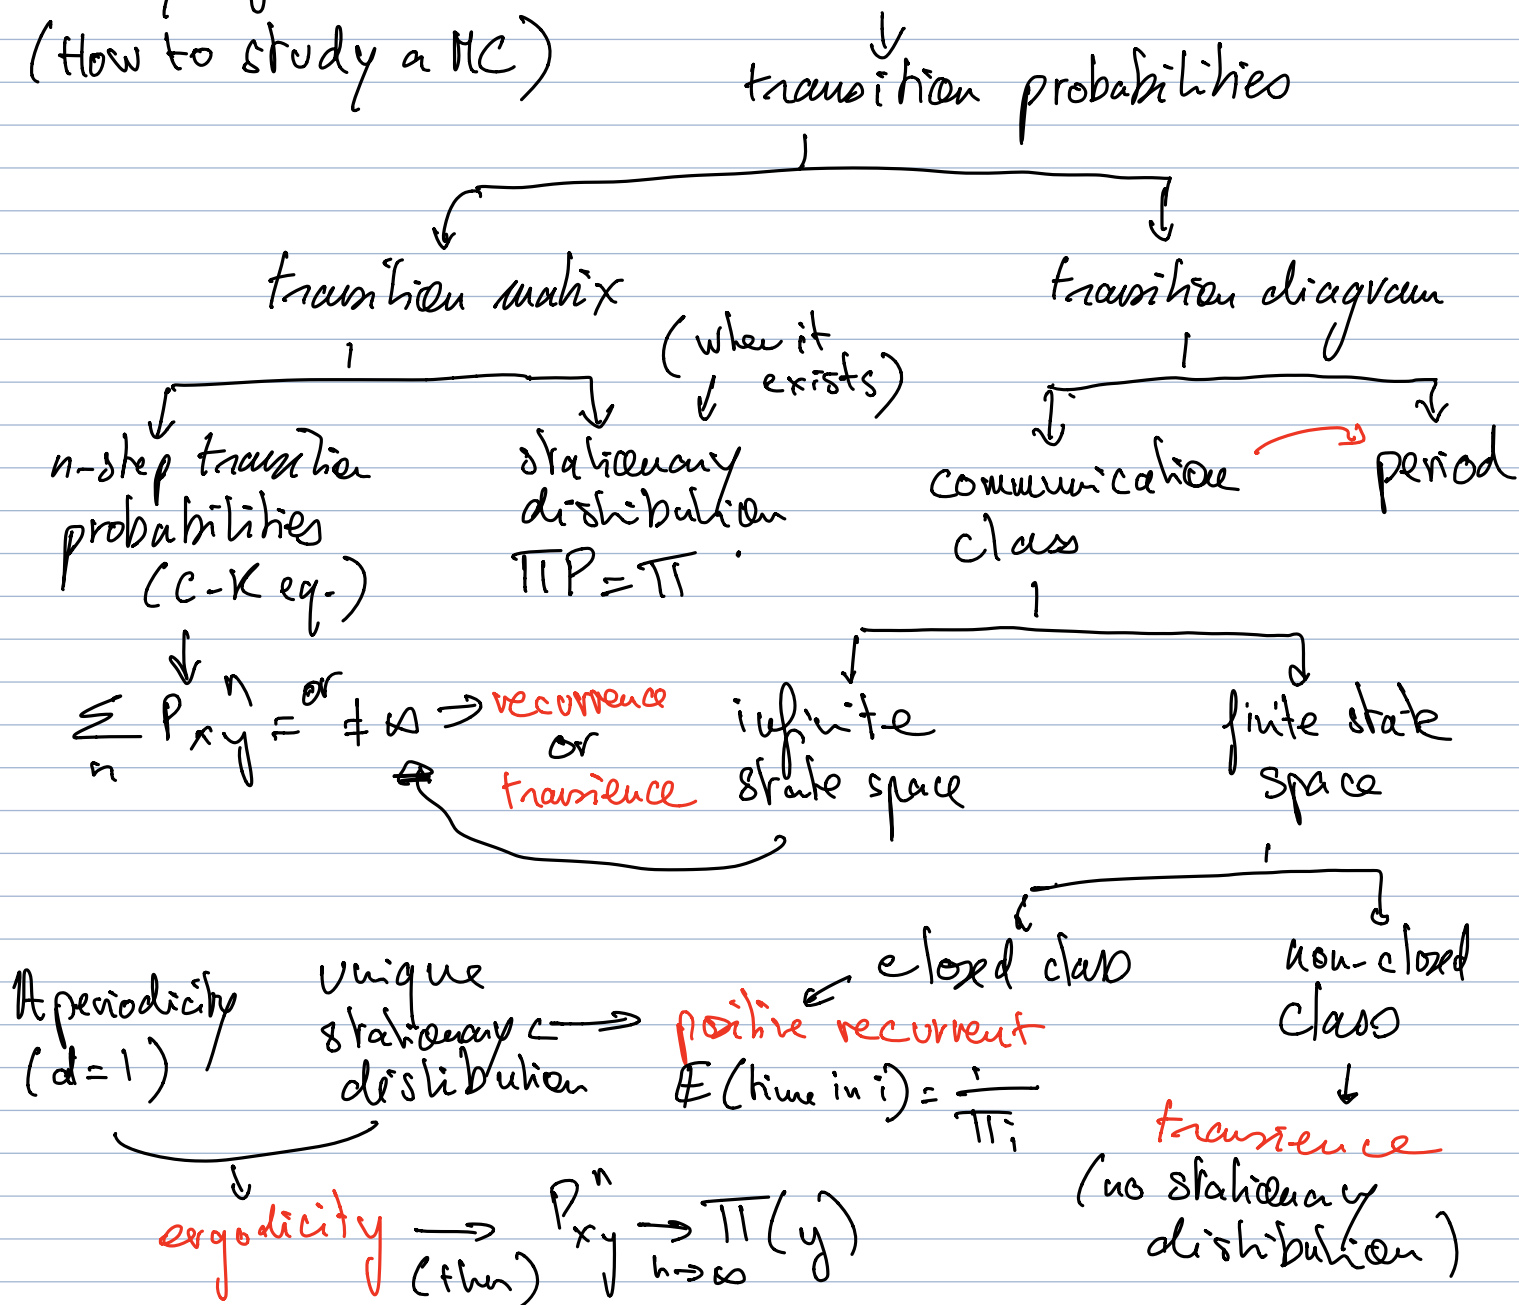 (How to study a MC)
transition probabilities
transition matrix
transition diagram
(when it
exists)
n-step transition
probabilities
(C-K eq.)
stationary
distribution
πP = π
communication
class
period
∑ₙ Pⁿₓᵧ = or ≠ ∞ → recurrence
or
transience
infinite
state space
finite state
space
closed class
non-closed
class
Aperiodicity
(d=1)
unique
stationary
distribution
positive recurrent
E (time in i) = 1/πᵢ
transience
(no stationary
distribution)
ergodicity → (thm) Pⁿₓᵧ → n→∞ π(y)